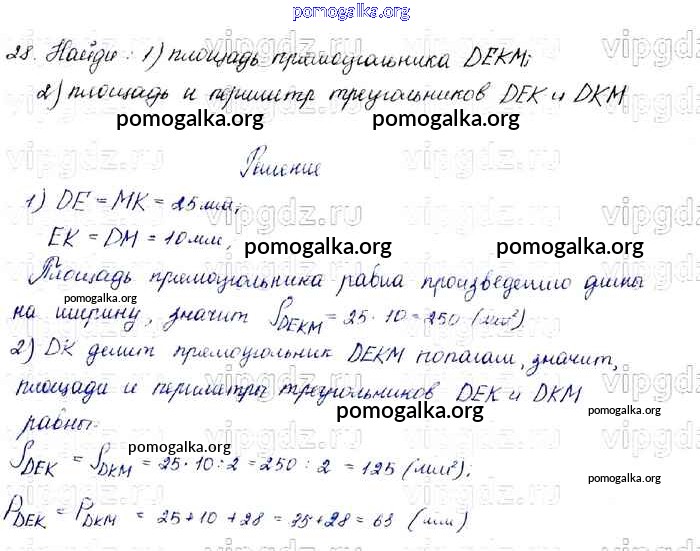 pomogalka.org
28. Найди: 1) площадь прямоугольника DEKM;
2) площадь и периметр треугольников DEK и DKM
pomogalka.org pomogalka.org
Решение
1) DE = MK = 25 мм;
EK = DM = 10 мм, pomogalka.org pomogalka.org
Площадь прямоугольника равна произведению длины
pomogalka.org
на ширину, значит S DEKM = 25 · 10 = 250 (мм²)
2) DK делит прямоугольник DEKM пополам, значит,
площади и периметры треугольников DEK и DKM
равны. pomogalka.org pomogalka.org
pomogalka.org
S DEK = S DKM = 25 · 10 : 2 = 250 : 2 = 125 (мм²);
pomogalka.org
P DEK = P DKM = 25 + 10 + 28 = 35 + 28 = 63 (мм)
vipgdz.ru